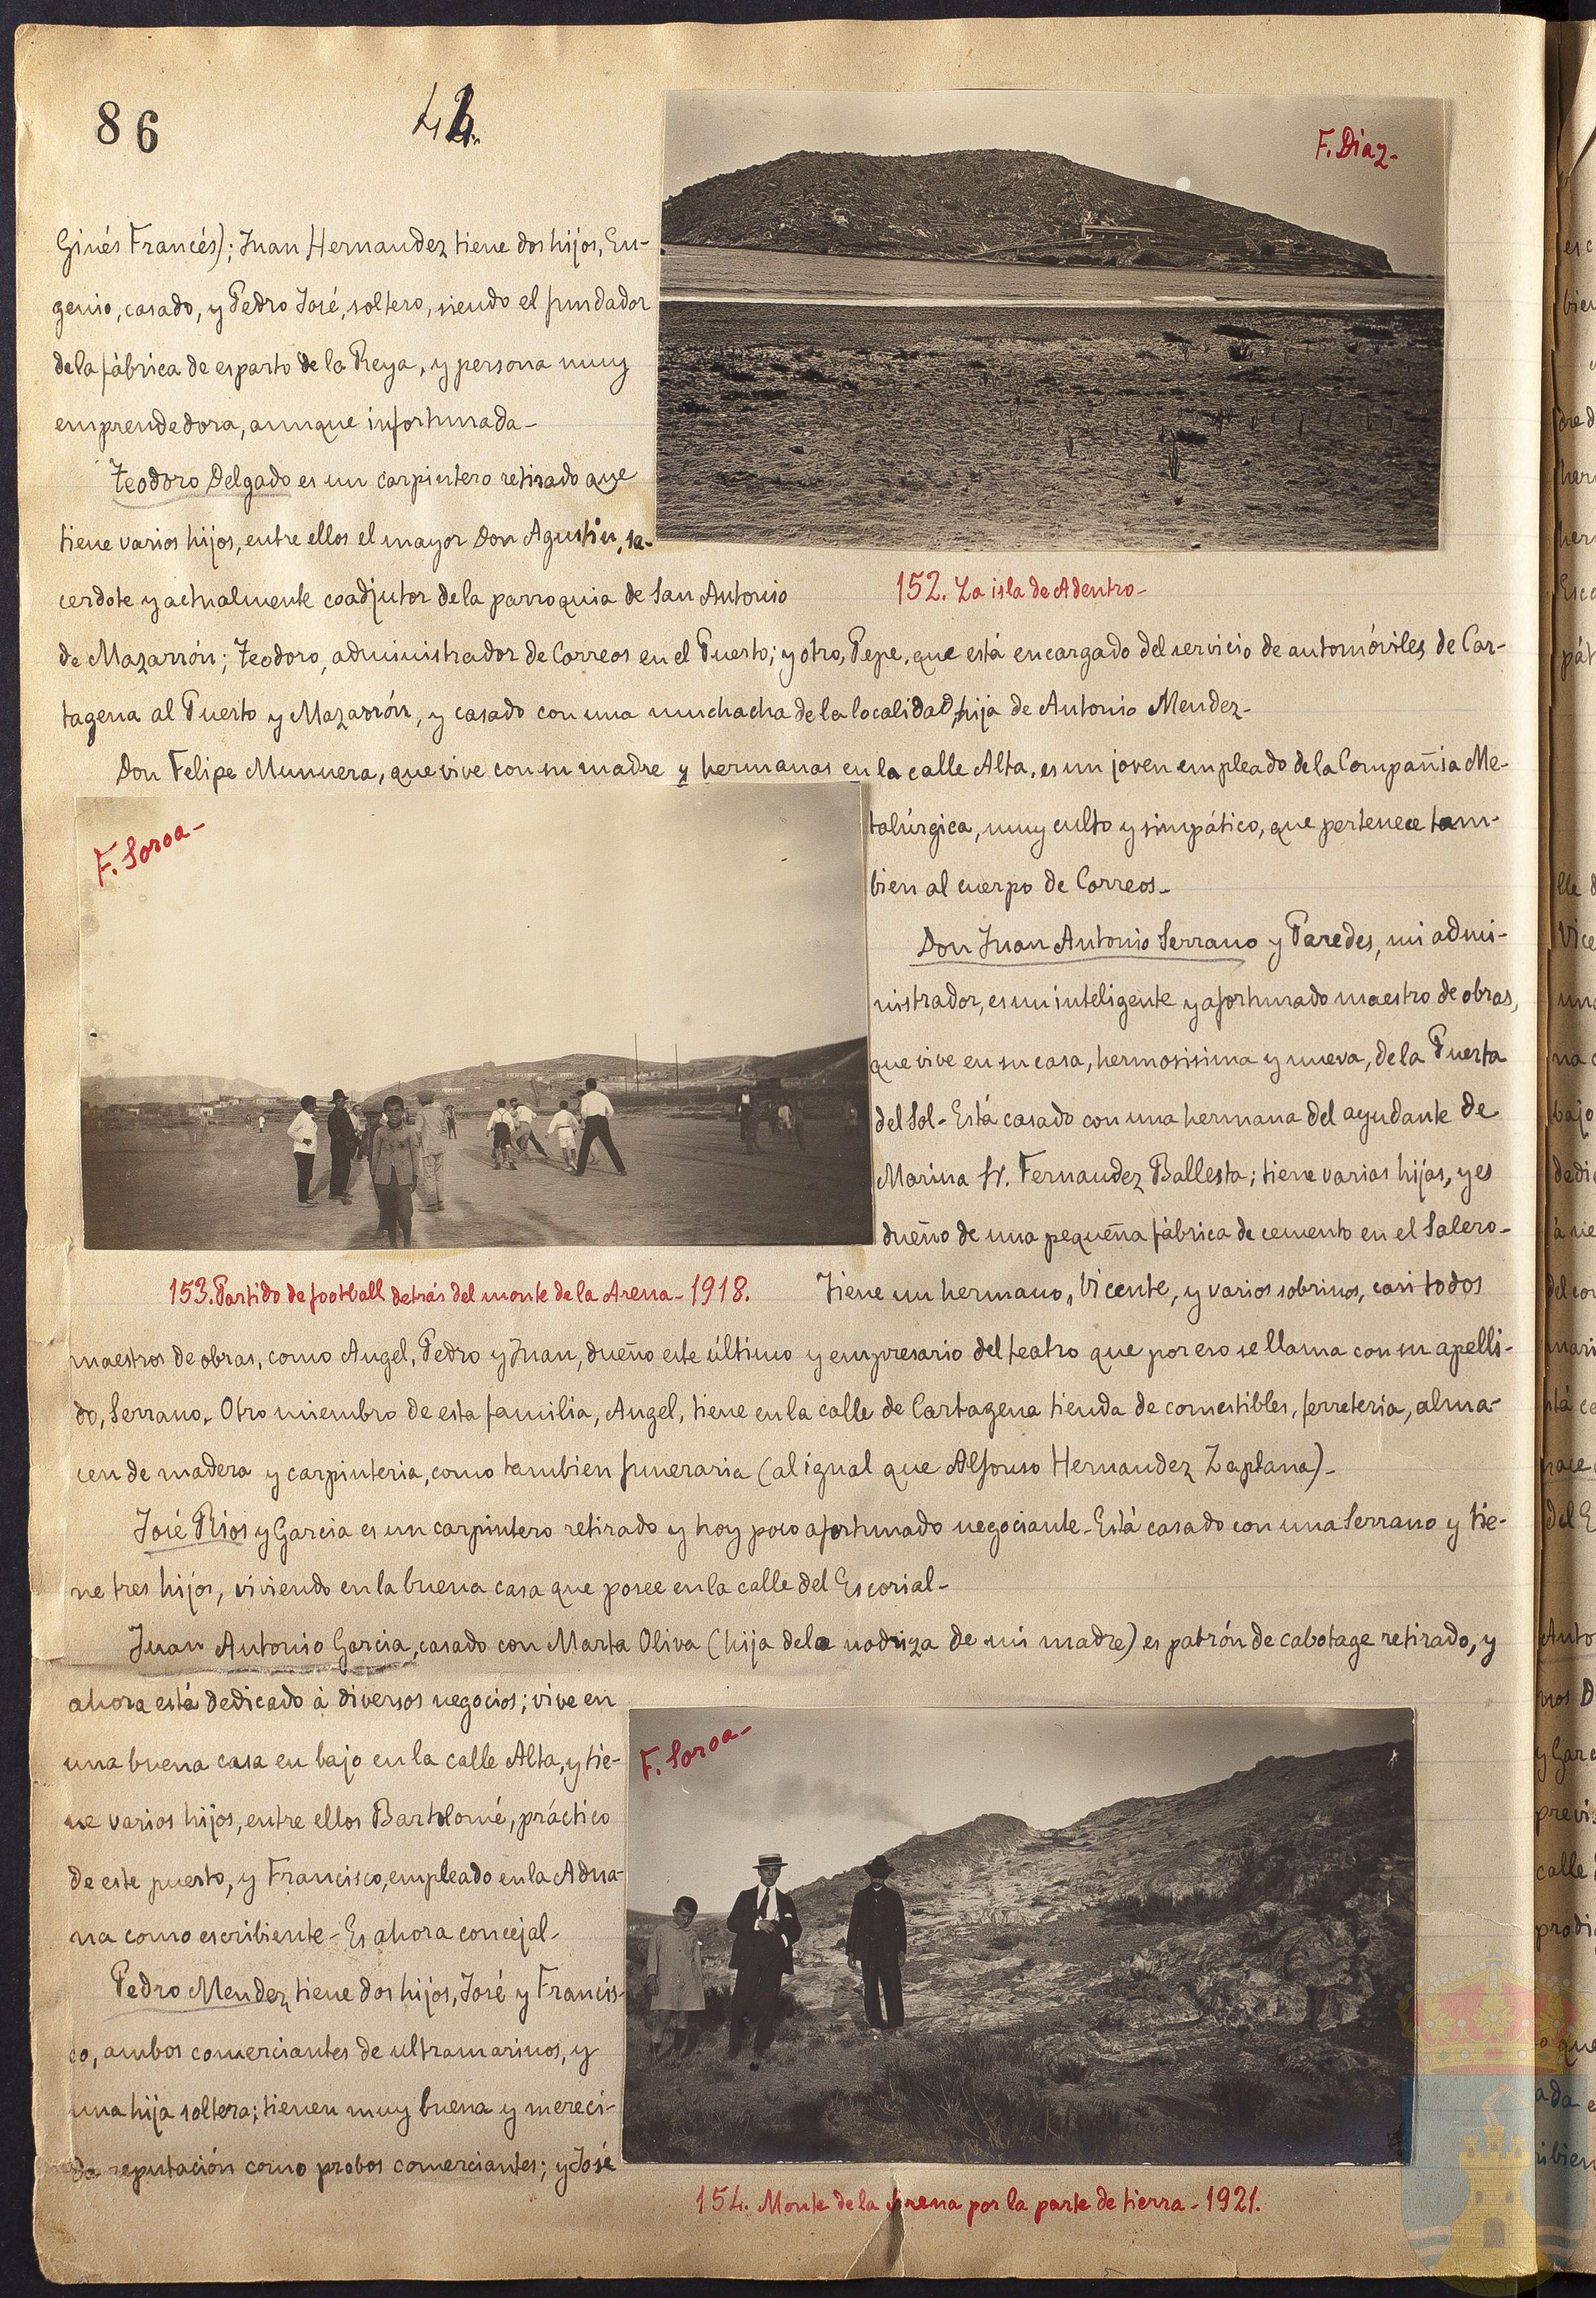 86
F. Diaz-
Ginés Francés); Juan Hernandez tiene dos hijos, Eu-
genio, casado, y Pedro José, soltero, siendo el fundador
de la fábrica de esparto de la Reya, y persona muy
emprendedora, aunque infortunada-
Teodoro Delgado es un carpintero retirado que
tiene varios hijos, entre ellos el mayor Don Agustin, sa-
152. La isla de Adentro-
cerdote y actualmente coadjutor de la parroquia de San Antonio
de Mazarrón; Teodoro, administrador de Correos en el Puerto; y otro, Pepe, que está encargado del servicio de automóviles de Car-
tagena al Puerto y Mazarrón, y casado con una muchacha de la localidad, hija de Antonio Mendez-
Don Felipe Munuera, que vive con su madre y hermanas en la calle Alta, es un joven empleado de la Compañia Me-
F. Soroa-
talúrgica, muy culto y simpático, que pertenece tam-
bien al cuerpo de Correos-
Don Juan Antonio Serrano y Paredes, mi admi-
nistrador, es un inteligente y afortunado maestro de obras,
que vive en su casa, hermosisima y nueva, de la Puerta
del Sol- Está casado con una hermana del ayudante de
Marina Sr. Fernandez Ballesta; tiene varias hijas, y es
dueño de una pequeña fábrica de cemento en el Salero-
153. Partido de football detrás del monte de la Arena-1918.
Tiene un hermano, Vicente, y varios sobrinos, casi todos
maestros de obras, como Angel, Pedro y Juan, dueño este último y empresario del teatro que por eso se llama con su apelli-
do, Serrano. Otro miembro de esta familia, Angel, tiene en la calle de Cartagena tienda de comestibles, ferreteria, alma-
cen de madera y carpinteria, como tambien funeraria (al igual que Alfonso Hernandez Zaplana)-
José Rios y Garcia es un carpintero retirado y hoy poco afortunado negociante- Está casado con una Serrano y tie-
ne tres hijos, viviendo en la buena casa que posee en la calle del Escorial-
Juan Antonio Garcia, casado con Marta Oliva (hija de la nodriza de mi madre) es patrón de cabotage retirado, y
ahora está dedicado à diversos negocios; vive en
una buena casa en bajo en la calle Alta, y tie-
ne varios hijos, entre ellos Bartolomé, práctico
de este puerto, y Francisco, empleado en la Adua-
na como escribiente- Es ahora concejal-
Pedro Mendez tiene dos hijos, José y Francis-
co, ambos comerciantes de ultramarinos, y
una hija soltera; tienen muy buena y mereci-
da reputación como probos comerciantes; y José
F. Soroa-
154. Monte de la Arena por la parte de tierra-1921.